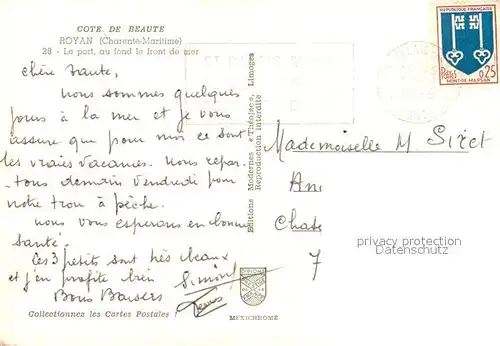 COTE DE BEAUTE
ROYAN (Charente-Maritime)
28 - Le port, au fond le front de mer
REPUBLIQUE FRANÇAISE
Postes 0,25
MONT-DE-MARSAN
chère Tante,
nous sommes quelques
jours à la mer et je vous
assure que pour moi ce sont
les vraies vacances. Nous repar-
tons demain vendredi pour
notre trou à pêche.
nous vous esperons en bonne
santé.
Les 3 petits sont très beaux
et j'en profite bien
Bons Baisers
Editions Modernes « Théojac », Limoges
Reproduction interdite
Mademoiselle M. Siret
An
Chate
7
privacy protection
Datenschutz
Collectionnez les Cartes Postales !
MEXICHROME